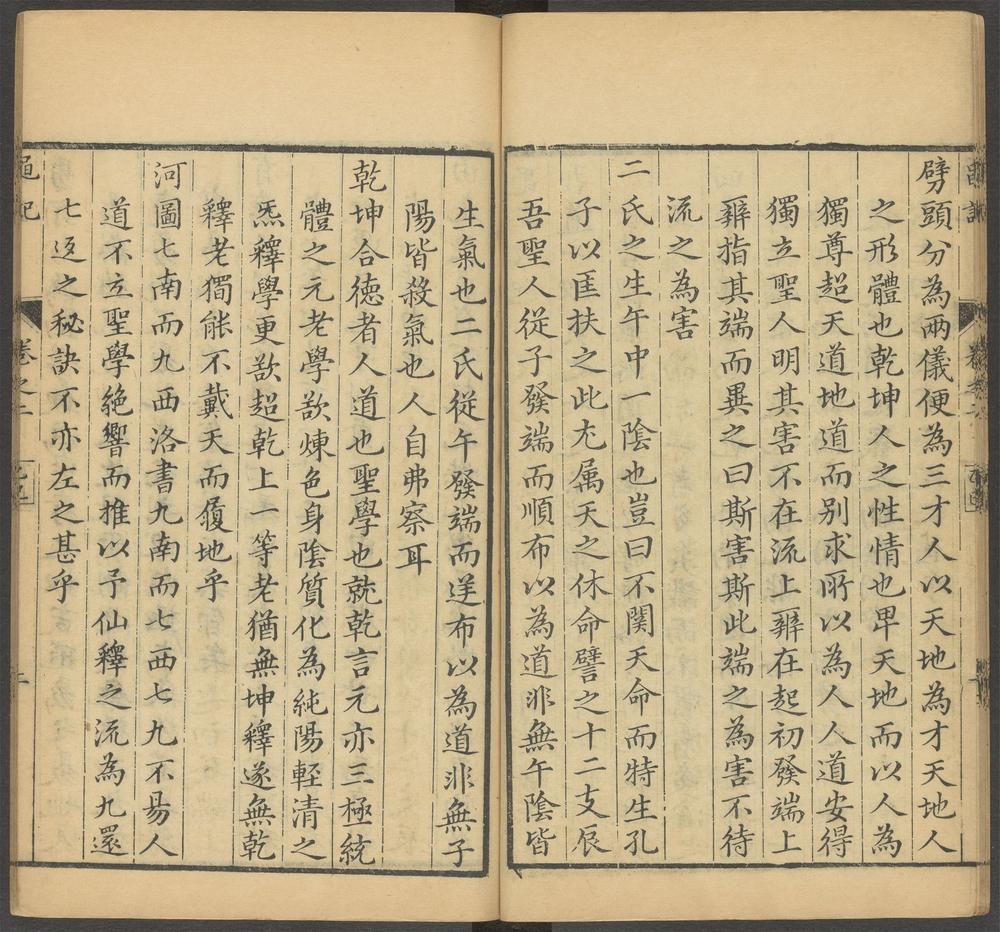 卷之二
劈頭分為兩儀便為三才人以天地為才天地人
之形體也乾坤人之性情也卑天地而以人為
獨尊超天道地道而别求所以為人人道安得
獨立聖人明其害不在流上辨在起初發端上
辨指其端而異之曰斯害斯此端之為害不待
流之為害
二氏之生午中一陰也豈曰不関天命而特生孔
子以匡扶之此尤属天之休命譬之十二支辰
吾聖人從子發端而順布以為道非無午陰皆
生氣也二氏從午發端而逆布以為道非無子
陽皆殺氣也人自弗察耳
乾坤合德者人道也聖學也就乾言元亦三極統
體之元老學欲煉色身陰質化為純陽輕清之
炁釋學更欲超乾上一等老猶無坤釋遂無乾
釋老獨能不戴天而履地乎
河圖七南而九西洛書九南而七西七九不易人
道不立聖學絶響而推以予仙釋之流為九還
七返之秘訣不亦左之甚乎
卷之二